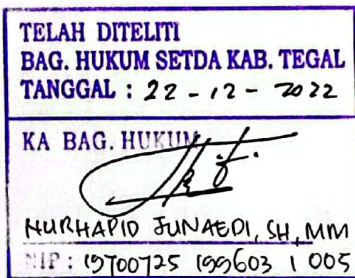 TELAH DITELITI
BAG. HUKUM SETDA KAB. TEGAL
TANGGAL : 22 - 12 - 2022
KA BAG. HUKUM
NURHAPID JUNAEDI, SH, MM
NIP : 19700725 199603 1 005